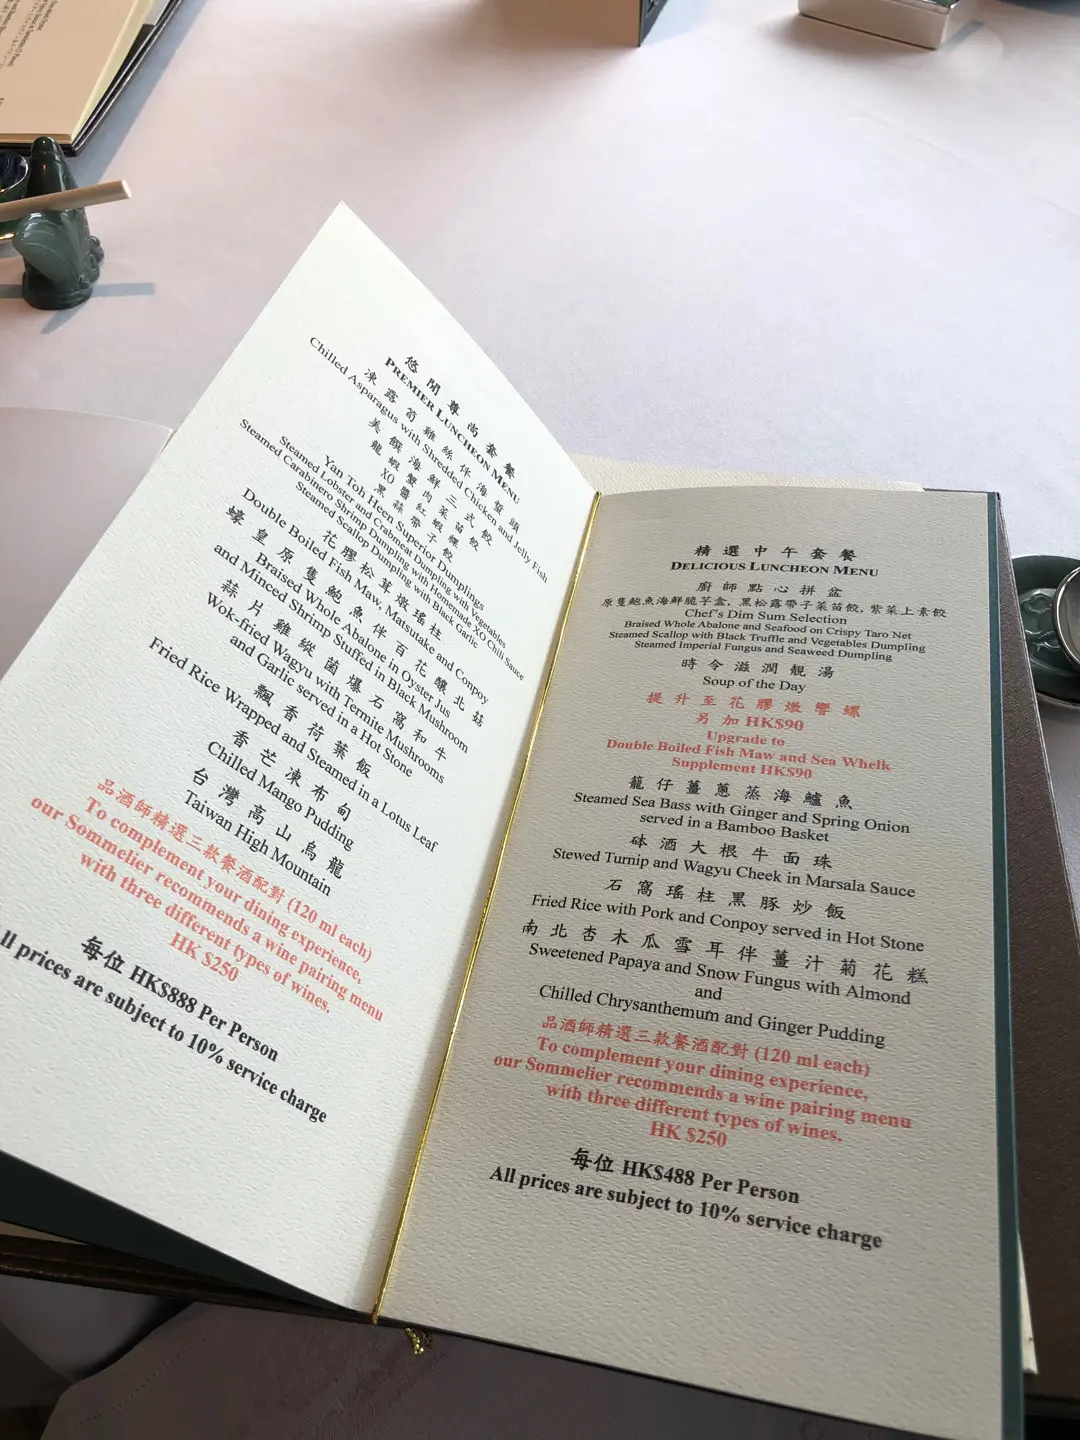 悠閒尊尚套餐
PREMIER LUNCHEON MENU
凍露筍雞絲伴海蜇頭
Chilled Asparagus with Shredded Chicken and Jelly Fish
美饌海鮮三式餃
龍蝦蟹肉菜苗餃
XO醬紅蝦餜
黑蒜帶子餃
Yan Toh Heen Superior Dumplings
Steamed Lobster and Crabmeat Dumpling with Vegetables
Steamed Carabinero Shrimp Dumpling with Homemade XO Chili Sauce
Steamed Scallop Dumpling with Black Garlic
花膠松茸燉瑤柱
Double Boiled Fish Maw, Matsutake and Conpoy
蠔皇原隻鮑魚伴百花釀北菇
Braised Whole Abalone in Oyster Jus
and Minced Shrimp Stuffed in Black Mushroom
蒜片雞縱菌爆石窩和牛
Wok-fried Wagyu with Termite Mushrooms
and Garlic served in a Hot Stone
飄香荷葉飯
Fried Rice Wrapped and Steamed in a Lotus Leaf
香芒凍布甸
Chilled Mango Pudding
台灣高山烏龍
Taiwan High Mountain
品酒師精選三款餐酒配對 (120 ml each)
To complement your dining experience,
our Sommelier recommends a wine pairing menu
with three different types of wines.
HK $250
每位 HK$888 Per Person
ll prices are subject to 10% service charge
精選中午套餐
DELICIOUS LUNCHEON MENU
廚師點心拼盆
原隻鮑魚海鮮脆芋盒, 黑松露帶子菜苗餃, 紫菜上素餃
Chef's Dim Sum Selection
Braised Whole Abalone and Seafood on Crispy Taro Net
Steamed Scallop with Black Truffle and Vegetables Dumpling
Steamed Imperial Fungus and Seaweed Dumpling
時令滋潤靚湯
Soup of the Day
提升至花膠燉響螺
另加 HK$90
Upgrade to
Double Boiled Fish Maw and Sea Whelk
Supplement HK$90
籠仔薑蔥蒸海鱸魚
Steamed Sea Bass with Ginger and Spring Onion
served in a Bamboo Basket
砵酒大根牛面珠
Stewed Turnip and Wagyu Cheek in Marsala Sauce
石窩瑤柱黑豚炒飯
Fried Rice with Pork and Conpoy served in Hot Stone
南北杏木瓜雪耳伴薑汁菊花糕
Sweetened Papaya and Snow Fungus with Almond
and
Chilled Chrysanthemum and Ginger Pudding
品酒師精選三款餐酒配對 (120 ml each)
To complement your dining experience,
our Sommelier recommends a wine pairing menu
with three different types of wines.
HK $250
每位 HK$488 Per Person
All prices are subject to 10% service charge